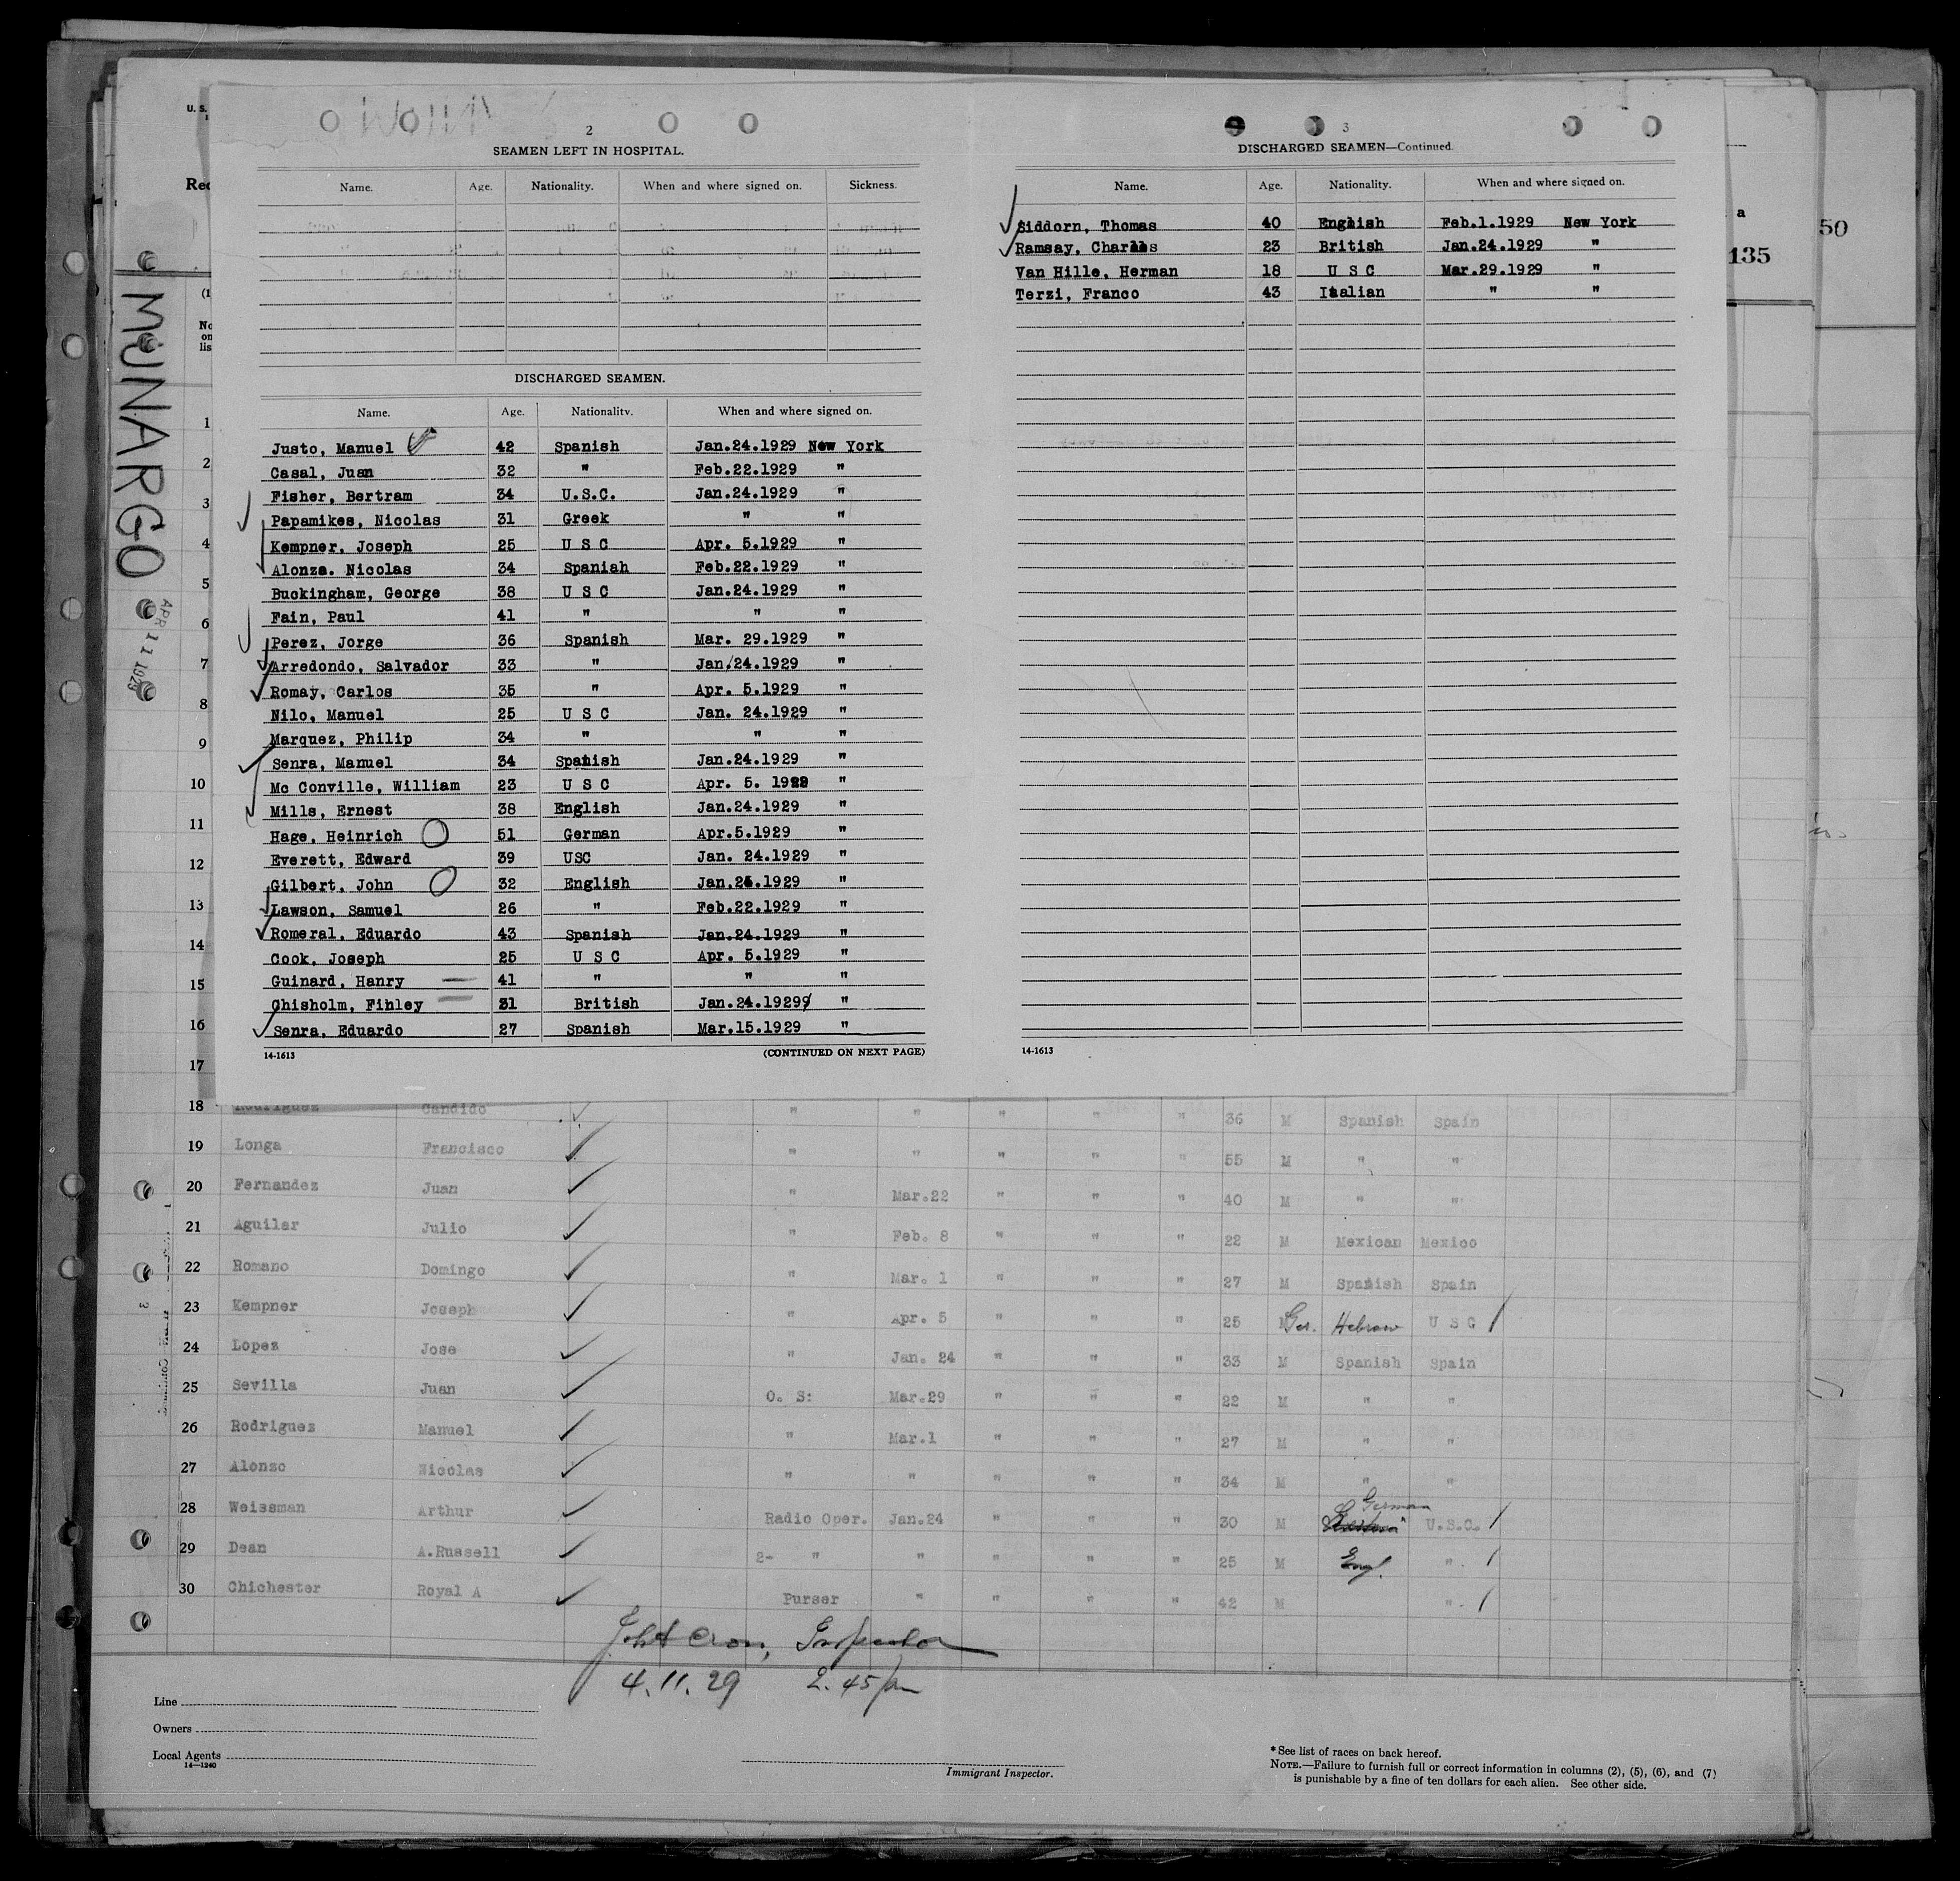 U. S.
Rec
(1
No
on
lis
MUNARGO
APR 11 1929
2
SEAMEN LEFT IN HOSPITAL.
Name. Age. Nationality. When and where signed on. Sickness.
DISCHARGED SEAMEN.
Name. Age. Nationality. When and where signed on.
Justo, Manuel 42 Spanish Jan.24.1929 New York
Casal, Juan 32 " Feb.22.1929 "
Fisher, Bertram 34 U.S.C. Jan.24.1929 "
Papamikes, Nicolas 31 Greek " "
Kempner, Joseph 25 U S C Apr. 5.1929 "
Alonzo. Nicolas 34 Spanish Feb.22.1929 "
Buckingham, George 38 U S C Jan.24.1929 "
Fain, Paul 41 " " "
Perez, Jorge 36 Spanish Mar. 29.1929 "
Arredondo, Salvador 33 " Jan.24.1929 "
Romay, Carlos 35 " Apr. 5.1929 "
Nilo, Manuel 25 U S C Jan. 24.1929 "
Marquez, Philip 34 " " "
Senra, Manuel 34 Spanish Jan.24.1929 "
Mc Conville, William 23 U S C Apr. 5. 1929 "
Mills, Ernest 38 English Jan.24.1929 "
Hage, Heinrich 51 German Apr.5.1929 "
Everett, Edward 39 USC Jan. 24.1929 "
Gilbert, John 32 English Jan.25.1929 "
Lawson, Samuel 26 " Feb.22.1929 "
Romeral, Eduardo 43 Spanish Jan.24.1929 "
Cook, Joseph 25 U S C Apr. 5.1929 "
Guinard, Hanry 41 " " "
Chisholm, Finley 31 British Jan.24.19299 "
Senra, Eduardo 27 Spanish Mar.15.1929 "
14-1613 (CONTINUED ON NEXT PAGE)
3
DISCHARGED SEAMEN—Continued.
Name. Age. Nationality. When and where signed on.
Siddorn, Thomas 40 English Feb.1.1929 New York
Ramsay, Charles 23 British Jan.24.1929 "
Van Hille, Herman 18 U S C Mar.29.1929 "
Terzi, Franco 43 Italian " "
14-1613
a
135
50
1
2
3
4
5
6
7
8
9
10
11
12
13
14
15
16
17
18 Rodriguez Candido " " " " " 36 M Spanish Spain
19 Longa Francisco " " " " " 55 M " "
20 Fernandez Juan " Mar.22 " " " 40 M " "
21 Aguilar Julio " Feb. 8 " " " 22 M Mexican Mexico
22 Romano Domingo " Mar. 1 " " " 27 M Spanish Spain
23 Kempner Joseph " Apr. 5 " " " 25 M Ger. Hebrew U S C
24 Lopez Jose " Jan. 24 " " " 33 M Spanish Spain
25 Sevilla Juan O. S: Mar.29 " " " 22 M " "
26 Rodriguez Manuel " Mar.1 " " " 27 M " "
27 Alonzo Nicolas " " " " " 34 M " "
28 Weissman Arthur Radio Oper. Jan.24 " " " 30 M German U.S.C.
29 Dean A.Russell 2- " " " " " 25 M Eng. "
30 Chichester Royal A Purser " " " " 42 M "
Inspector
4.11.29 2.45 pm
Line
Owners
Local Agents
14—1240
Immigrant Inspector.
* See list of races on back hereof.
NOTE.—Failure to furnish full or correct information in columns (2), (5), (6), and (7)
is punishable by a fine of ten dollars for each alien. See other side.